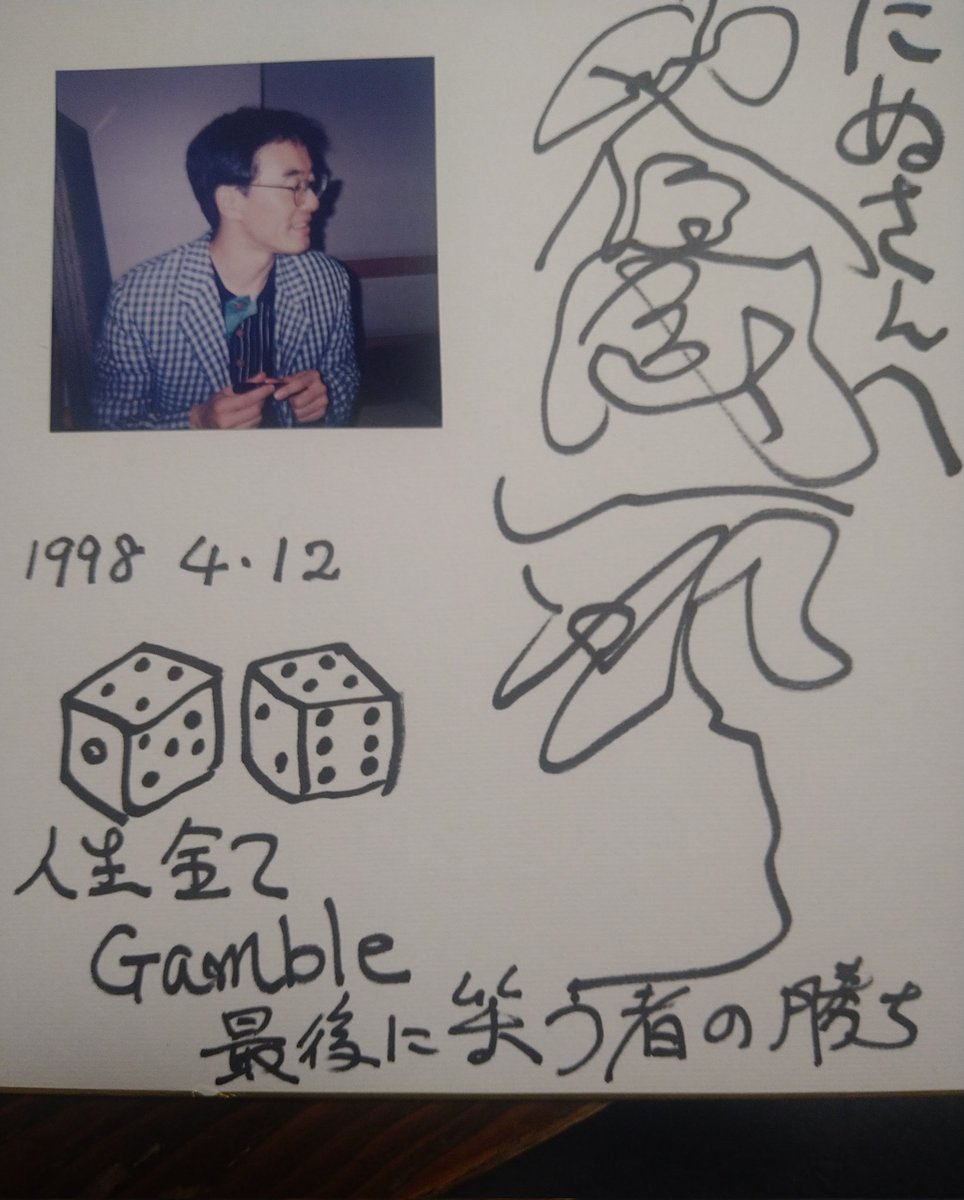 にぬさんへ
1998 4・12
人生全て
Gamble
最後に笑う者の勝ち